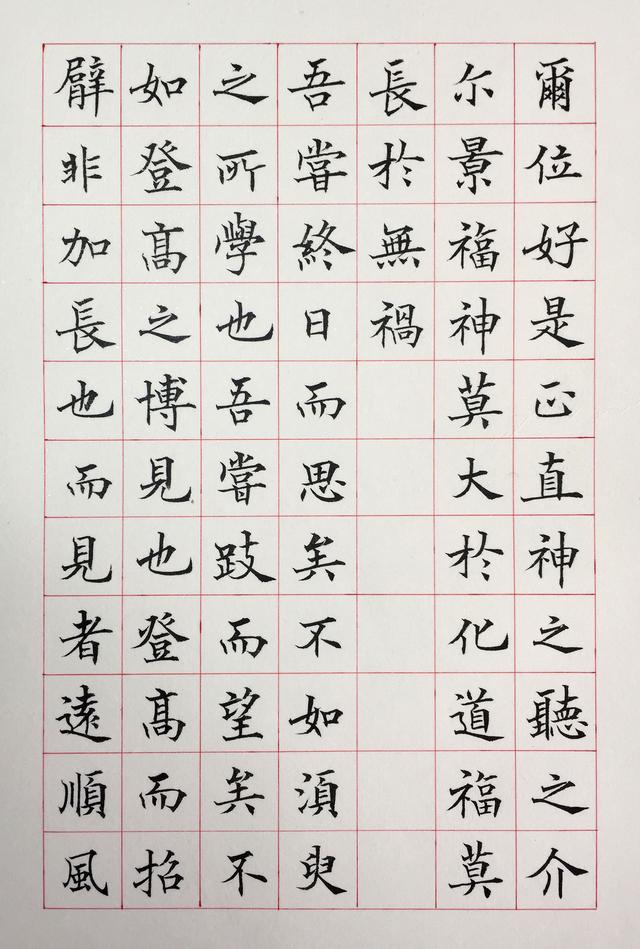 爾位好是正直神之聽之介
尔景福神莫大於化道福莫
長於無禍
吾嘗終日而思矣不如須臾
之所學也吾嘗跂而望矣不
如登髙之博見也登髙而招
臂非加長也而見者遠順風